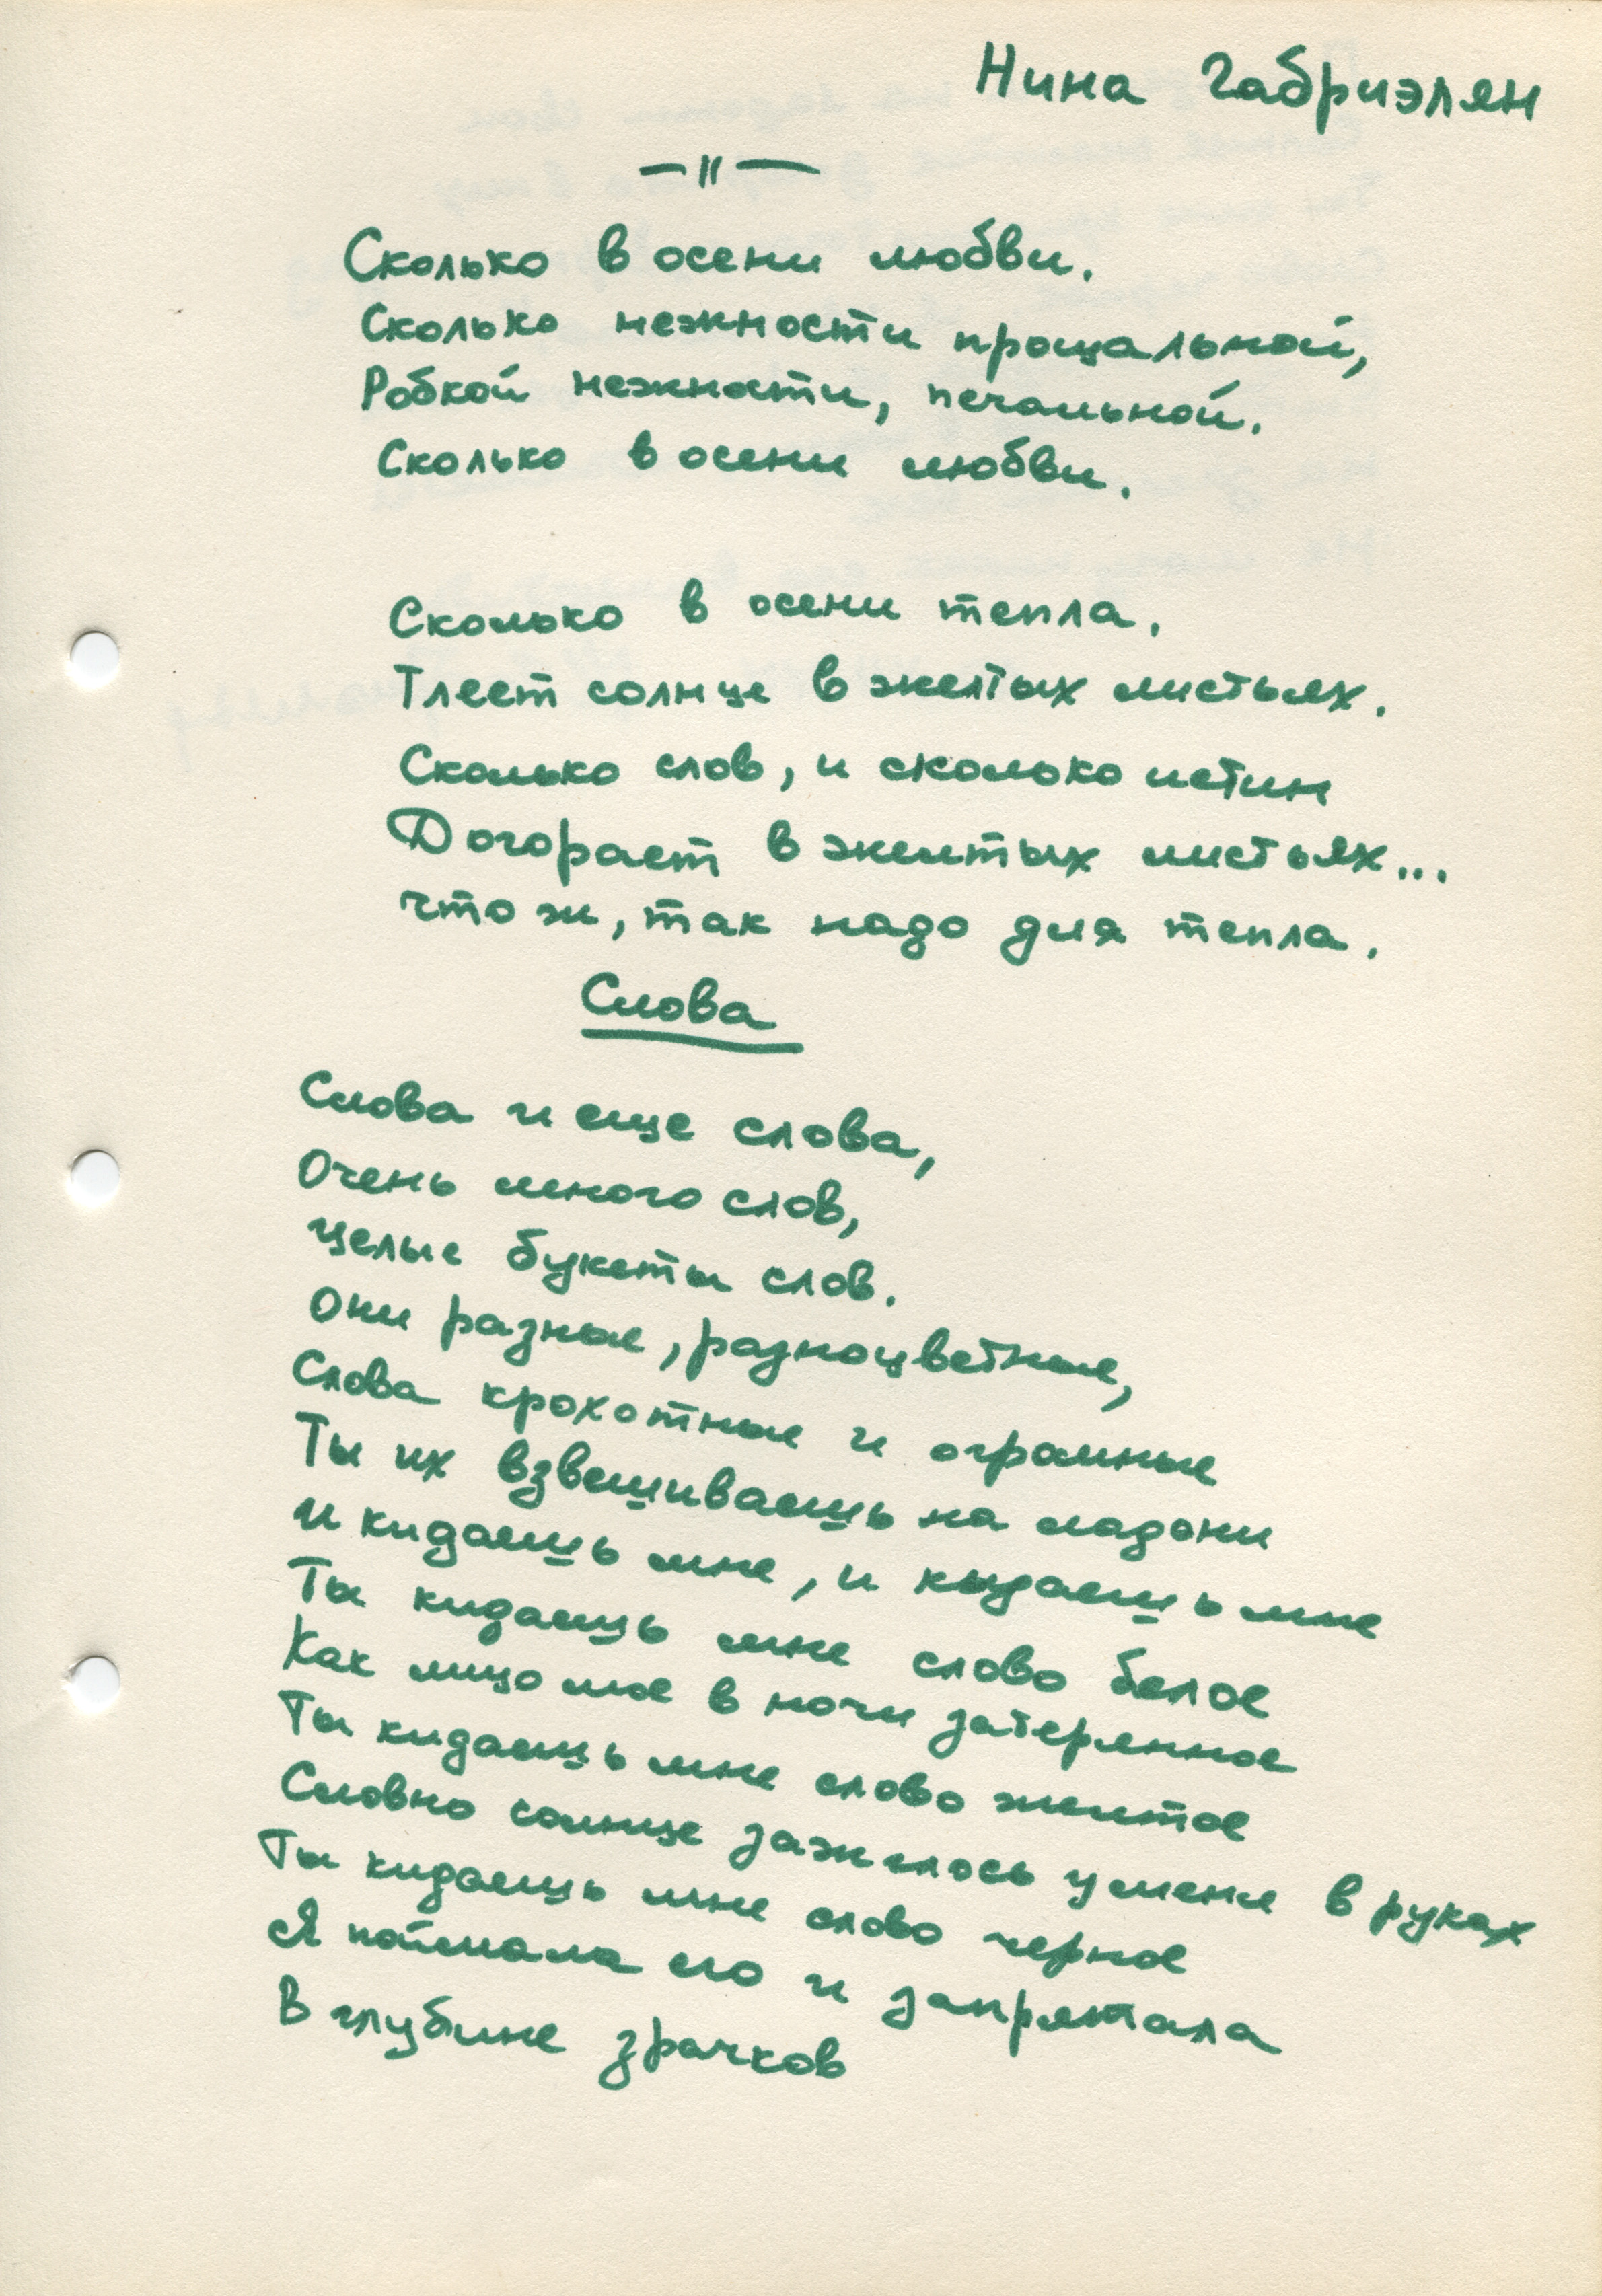 Нина Габриэлян
—〃—
Сколько в осени любви.
Сколько нежности прощальной,
Робкой нежности, печальной.
Сколько в осени любви.
Сколько в осени тепла.
Тлеет солнце в желтых листьях.
Сколько слов, и сколько истин
Догорает в желтых листьях...
что ж, так надо для тепла.
Слова
Слова и еще слова,
Очень много слов,
целые букеты слов.
Они разные, разноцветные,
Слова крохотные и огромные
Ты их взвешиваешь на ладони
и кидаешь мне, и кидаешь мне
Ты кидаешь мне слово белое
Как лицо мое в ночи затерянное
Ты кидаешь мне слово желтое
Словно солнце зажглось у меня в руках
Ты кидаешь мне слово черное
Я поймала его и запрятала
В глубине зрачков